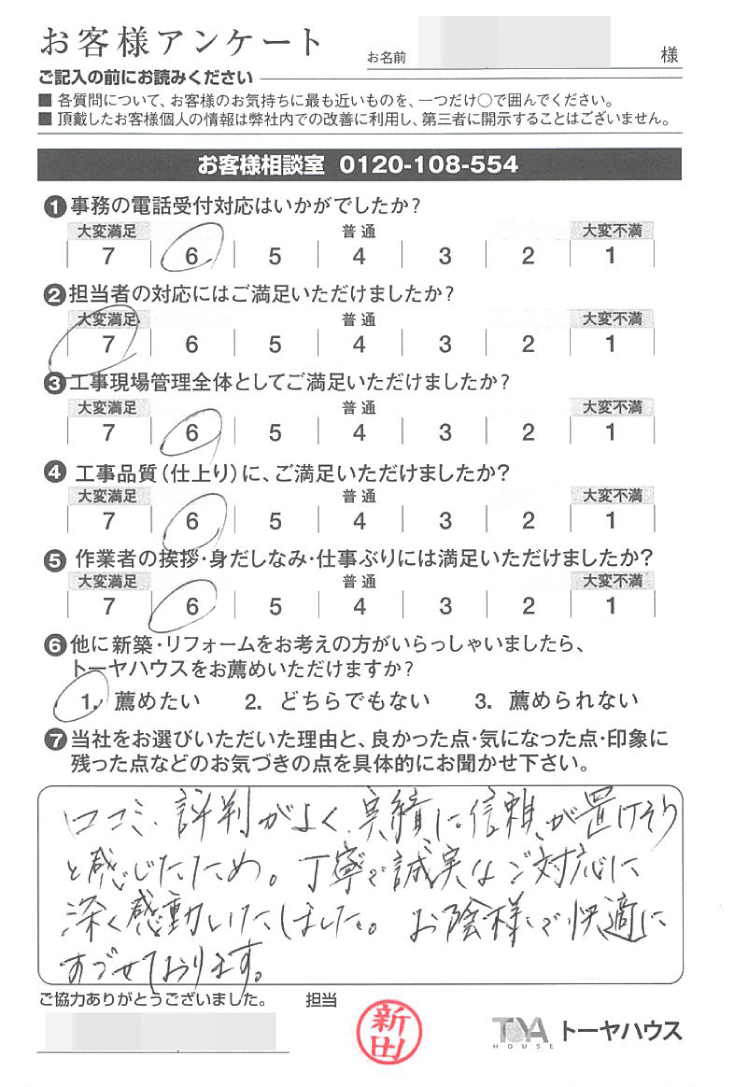 お客様アンケート
お名前 様
ご記入の前にお読みください
■ 各質問について、お客様のお気持ちに最も近いものを、一つだけ〇で囲んでください。
■ 頂戴したお客様個人の情報は弊社内での改善に利用し、第三者に開示することはございません。
お客様相談室 0120-108-554
❶事務の電話受付対応はいかがでしたか?
大変満足 普通 大変不満
7 6 5 4 3 2 1
❷担当者の対応にはご満足いただけましたか?
大変満足 普通 大変不満
7 6 5 4 3 2 1
❸工事現場管理全体としてご満足いただけましたか?
大変満足 普通 大変不満
7 6 5 4 3 2 1
❹ 工事品質(仕上り)に、ご満足いただけましたか?
大変満足 普通 大変不満
7 6 5 4 3 2 1
❺ 作業者の挨拶・身だしなみ・仕事ぶりには満足いただけましたか?
大変満足 普通 大変不満
7 6 5 4 3 2 1
❻他に新築・リフォームをお考えの方がいらっしゃいましたら、
トーヤハウスをお薦めいただけますか?
1. 薦めたい 2. どちらでもない 3. 薦められない
❼当社をお選びいただいた理由と、良かった点・気になった点・印象に
残った点などのお気づきの点を具体的にお聞かせ下さい。
口コミ、評判がよく、実績に信頼が置けそう
と感じたため。丁寧で誠実なご対応に
深く感動いたしました。お陰様で快適に
すごせております。
ご協力ありがとうございました。 担当
新田
TOYA HOUSE トーヤハウス